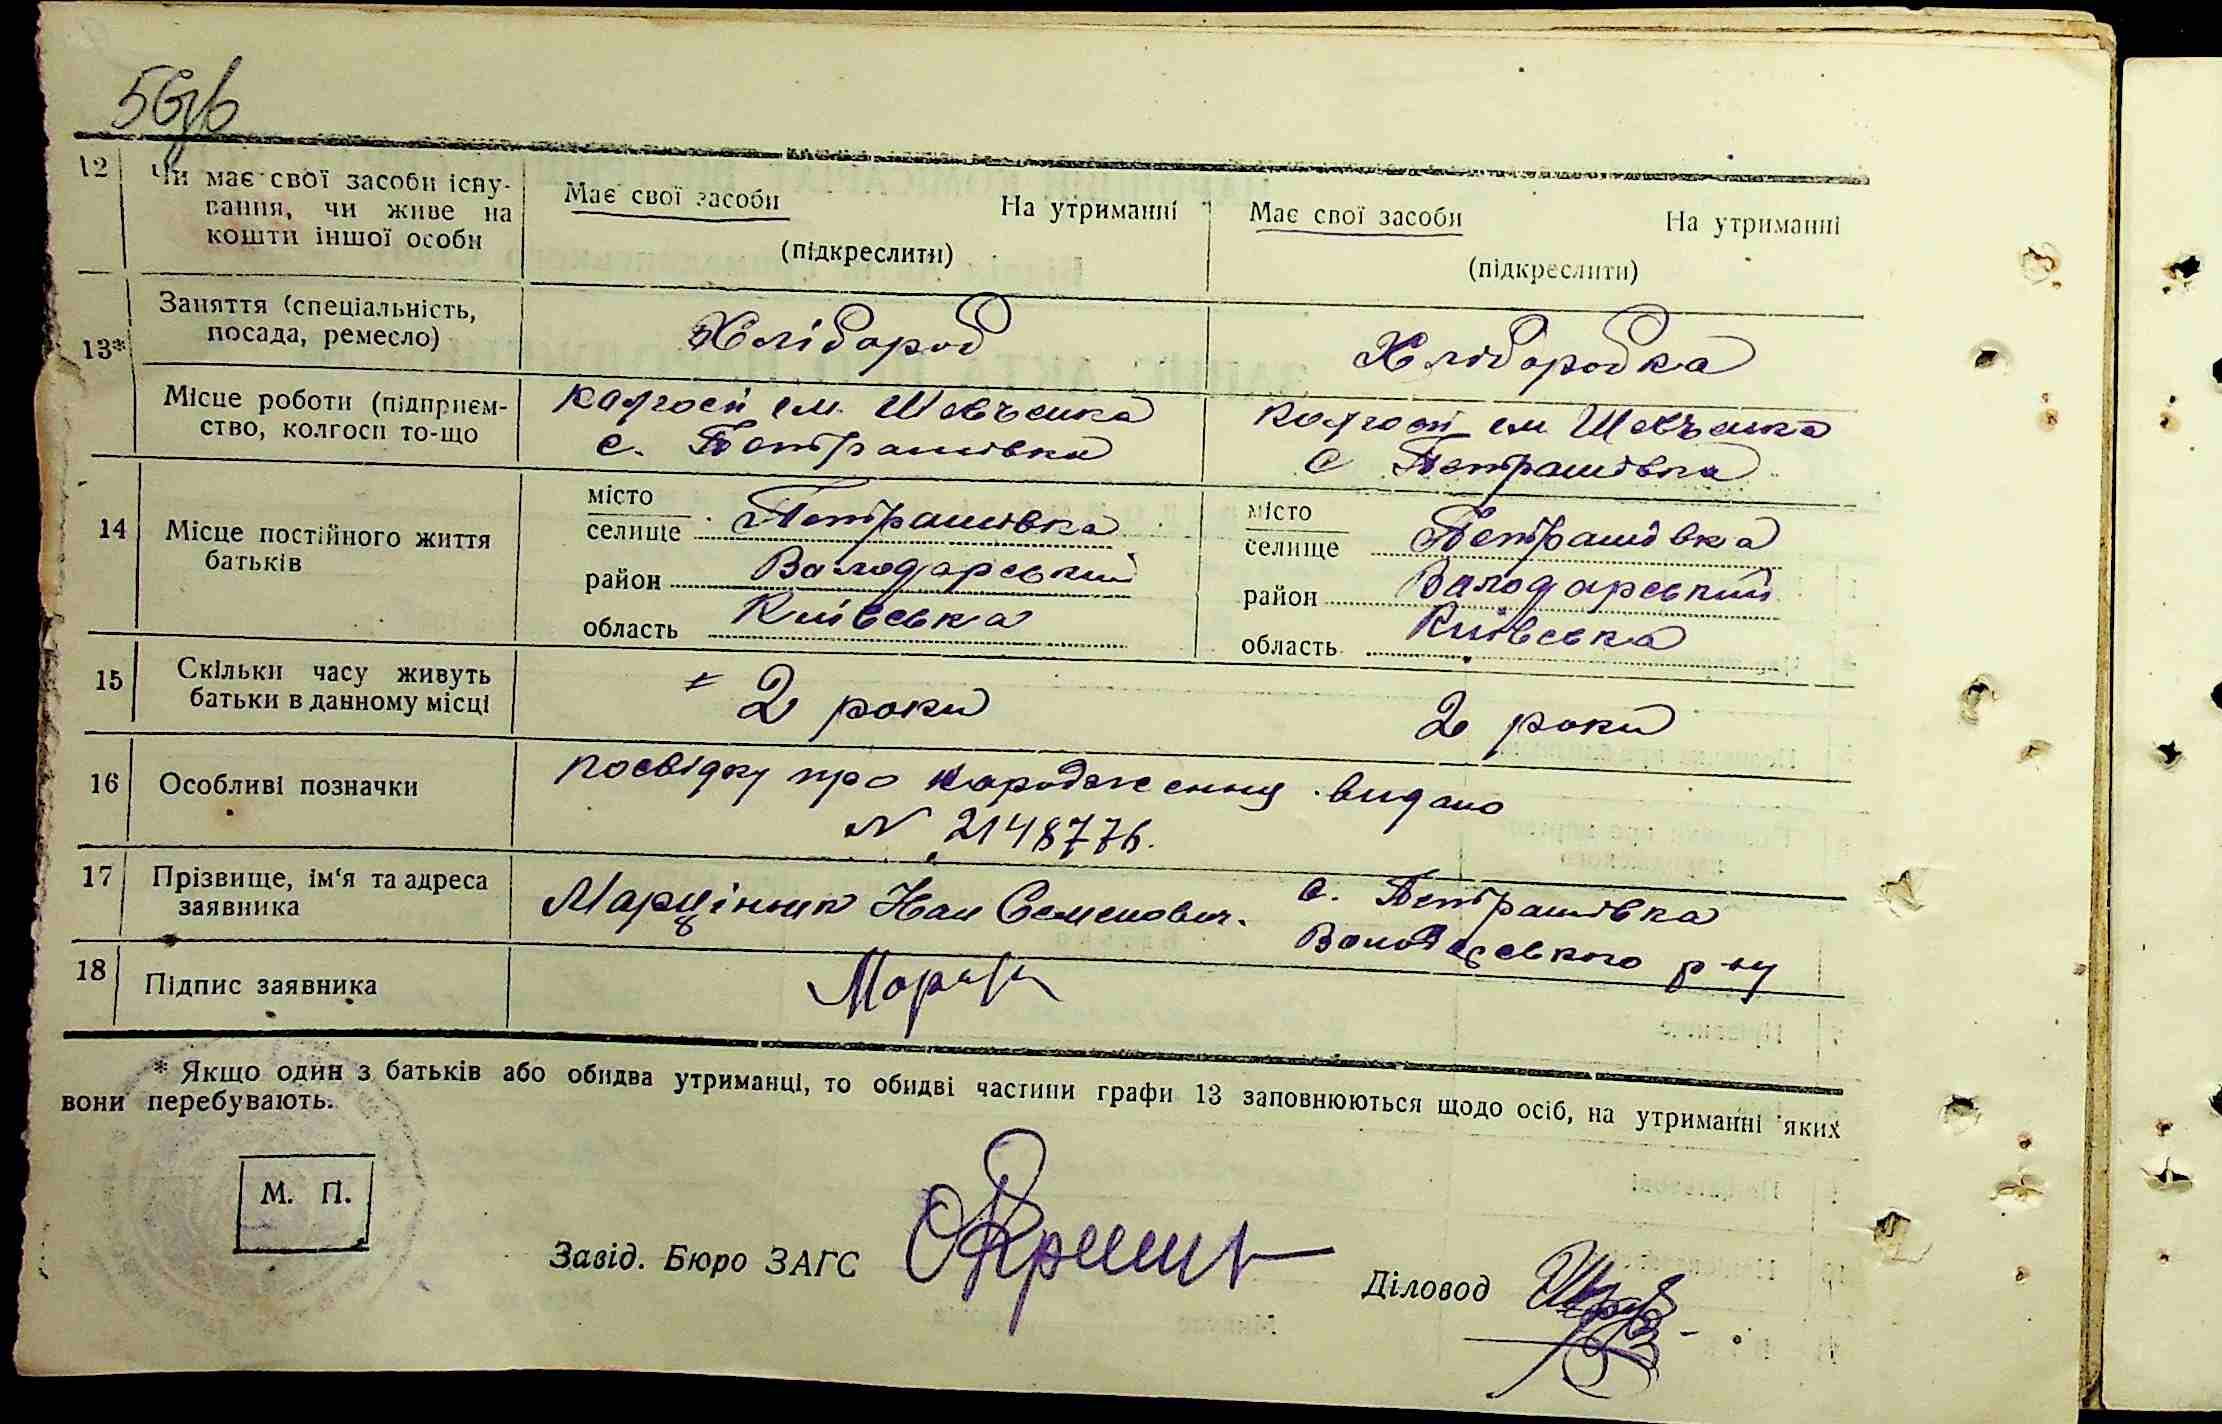 56
12 Чи має свої засоби існу-
вання, чи живе на
кошти іншої особи
Має свої засоби На утриманні
(підкреслити)
Має свої засоби На утриманні
(підкреслити)
13* Заняття (спеціальність,
посада, ремесло)
Хлібороб
Хліборобка
Місце роботи (підприєм-
ство, колгосп то-що
Колгосп ім. Шевченка
с. Петрашівка
Колгосп ім. Шевченка
с Петрашівка
14 Місце постійного життя
батьків
місто
селище Петрашівка
район Володарський
область Київська
місто
селище Петрашівка
район Володарський
область Київська
15 Скільки часу живуть
батьки в данному місці
2 роки
2 роки
16 Особливі позначки
Посвідку про народження видано
N 2148776.
17 Прізвище, ім'я та адреса
заявника
Марцінюк Іван Семенович.
с. Петрашівка
Володарського р-ну
18 Підпис заявника
* Якщо один з батьків або обидва утриманці, то обидві частини графи 13 заповнюються щодо осіб, на утриманні яких
вони перебувають.
М. П.
Завід. Бюро ЗАГС
Діловод